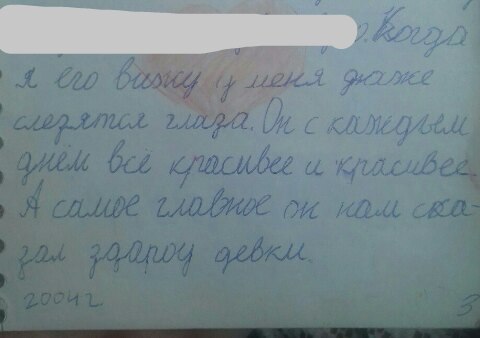 о. Когда
я его вижу у меня даже
слезятся глаза. Он с каждым
днём всё красивее и красивее
А самое главное он нам ска-
зал здароу девки.
2004 г
3